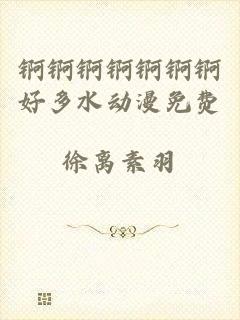 锕锕锕锕锕锕锕
好多水动漫免费
徐离素羽